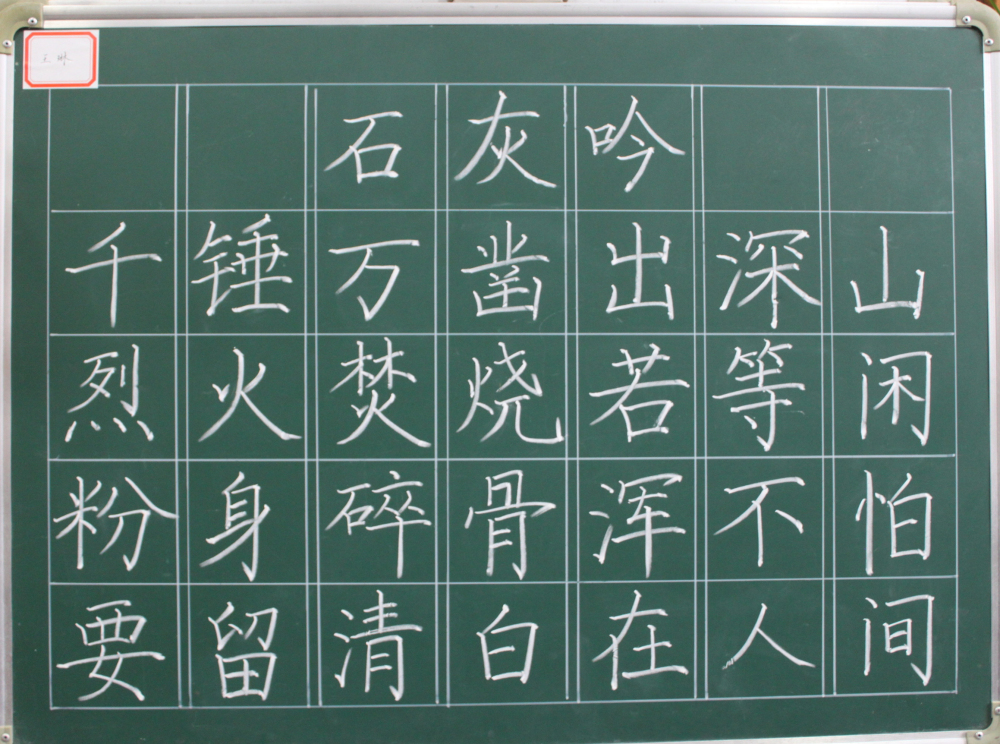 石灰吟
千锤万凿出深山
烈火焚烧若等闲
粉身碎骨浑不怕
要留清白在人间